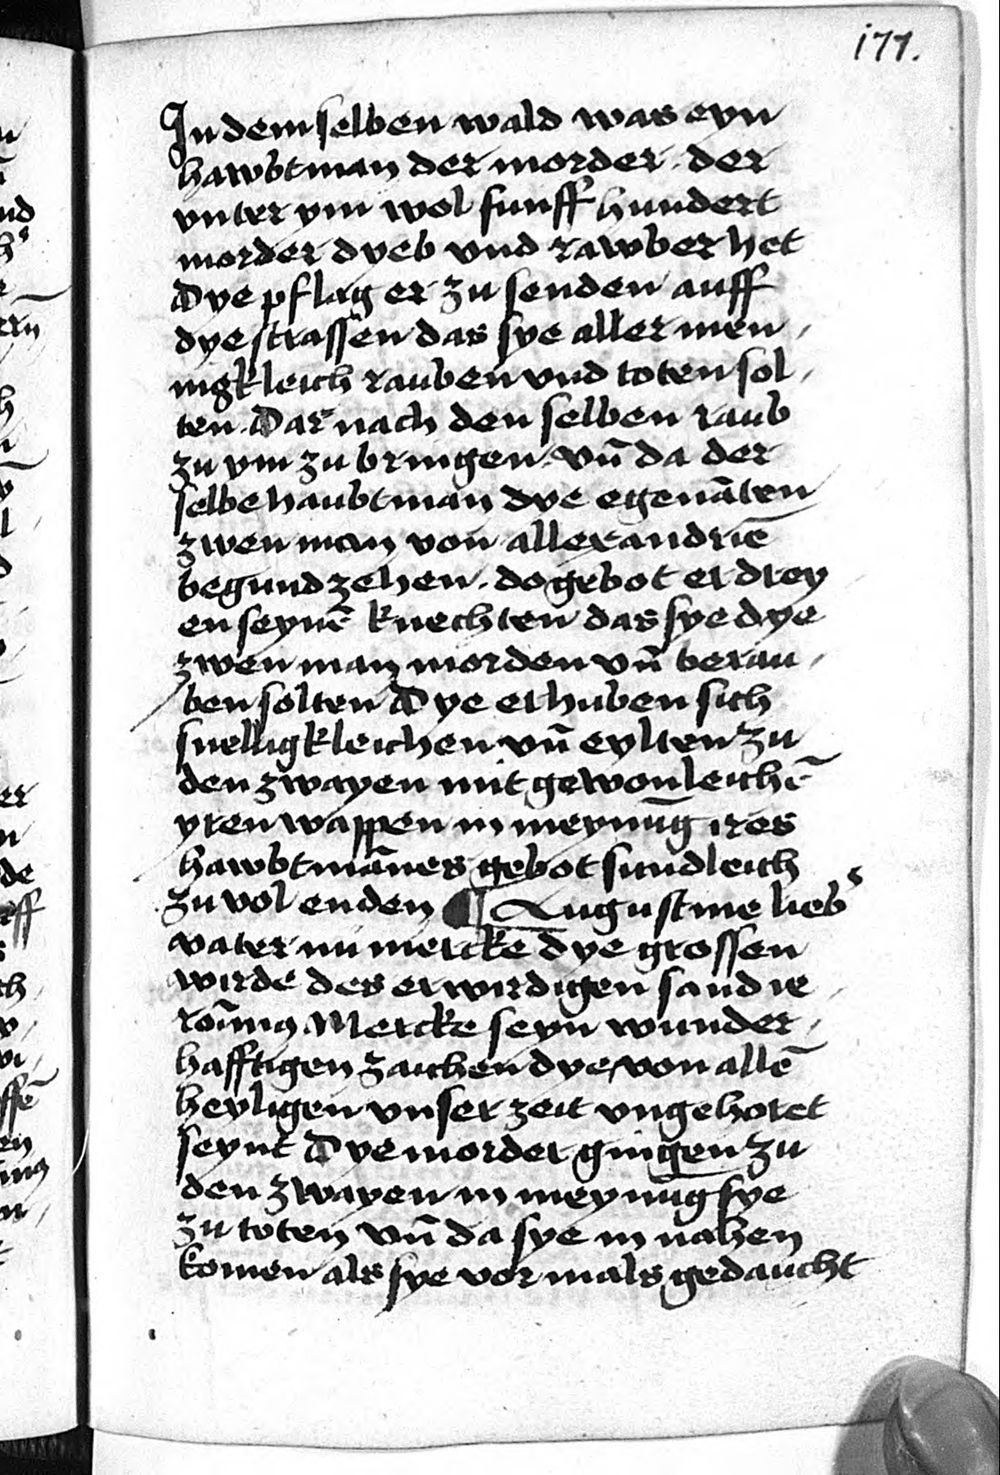 177.
In dem selben wald was eyn
hawbtman der morder · der
vnter ym wol funff hundert
morder dyeb vnd rawber het
Dye pflag er zu senden auff
dye strassen das sye aller men /
nigkleich rauben vnd toten sol /
ten · Dar nach den selben raub
zu ym zu bringen · vn̄ da der
selbe haubtman dye egenāten
zwen man von allexandriē
begund zehen · do gebot er drey
en seynē knechten das sye dye
zwen man morden vn̄ berau /
ben solten Dye erhuben sich
snelligkleichen vn̄ eylten zu
den zwayen mit gewonleichē
yren wappen in meynūg ires
hawbtmānes gebot sundleich
zu vol enden ¶ Augustine lieb
vater nu mercke dye grossen
wirde des erwirdigen sand ie /
ronimꝰ Mercke seyn wunder /
hafftigen zaichen dye von allē
heyligen vnser zeit vngehoret
seynt Dye morder gingen zu
den zwayen in meynūg sye
zu toten vn̄ da sye in nahen
komen als sye vor mals gedaucht